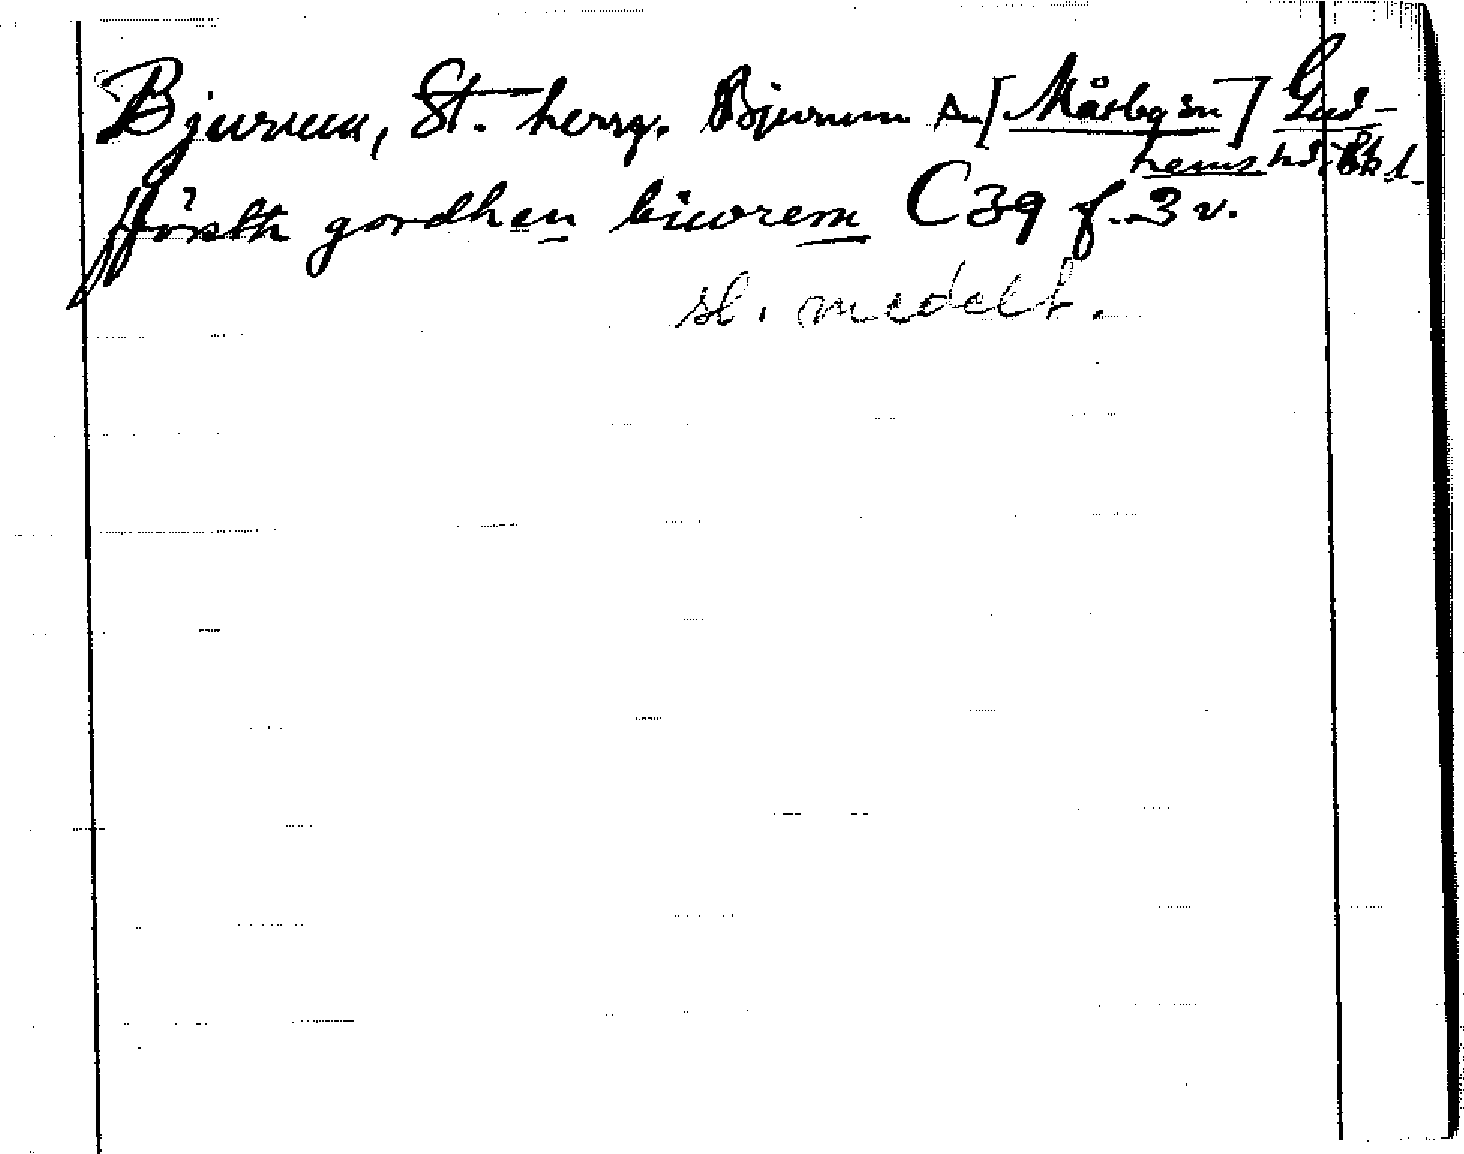 Bjurum, St. herrg. Bjurum sn [Mårby sn] Gud-
hems hd. Bhl.
fförsth gordhen biworem C39 f. 3 v.
sl. medelt.